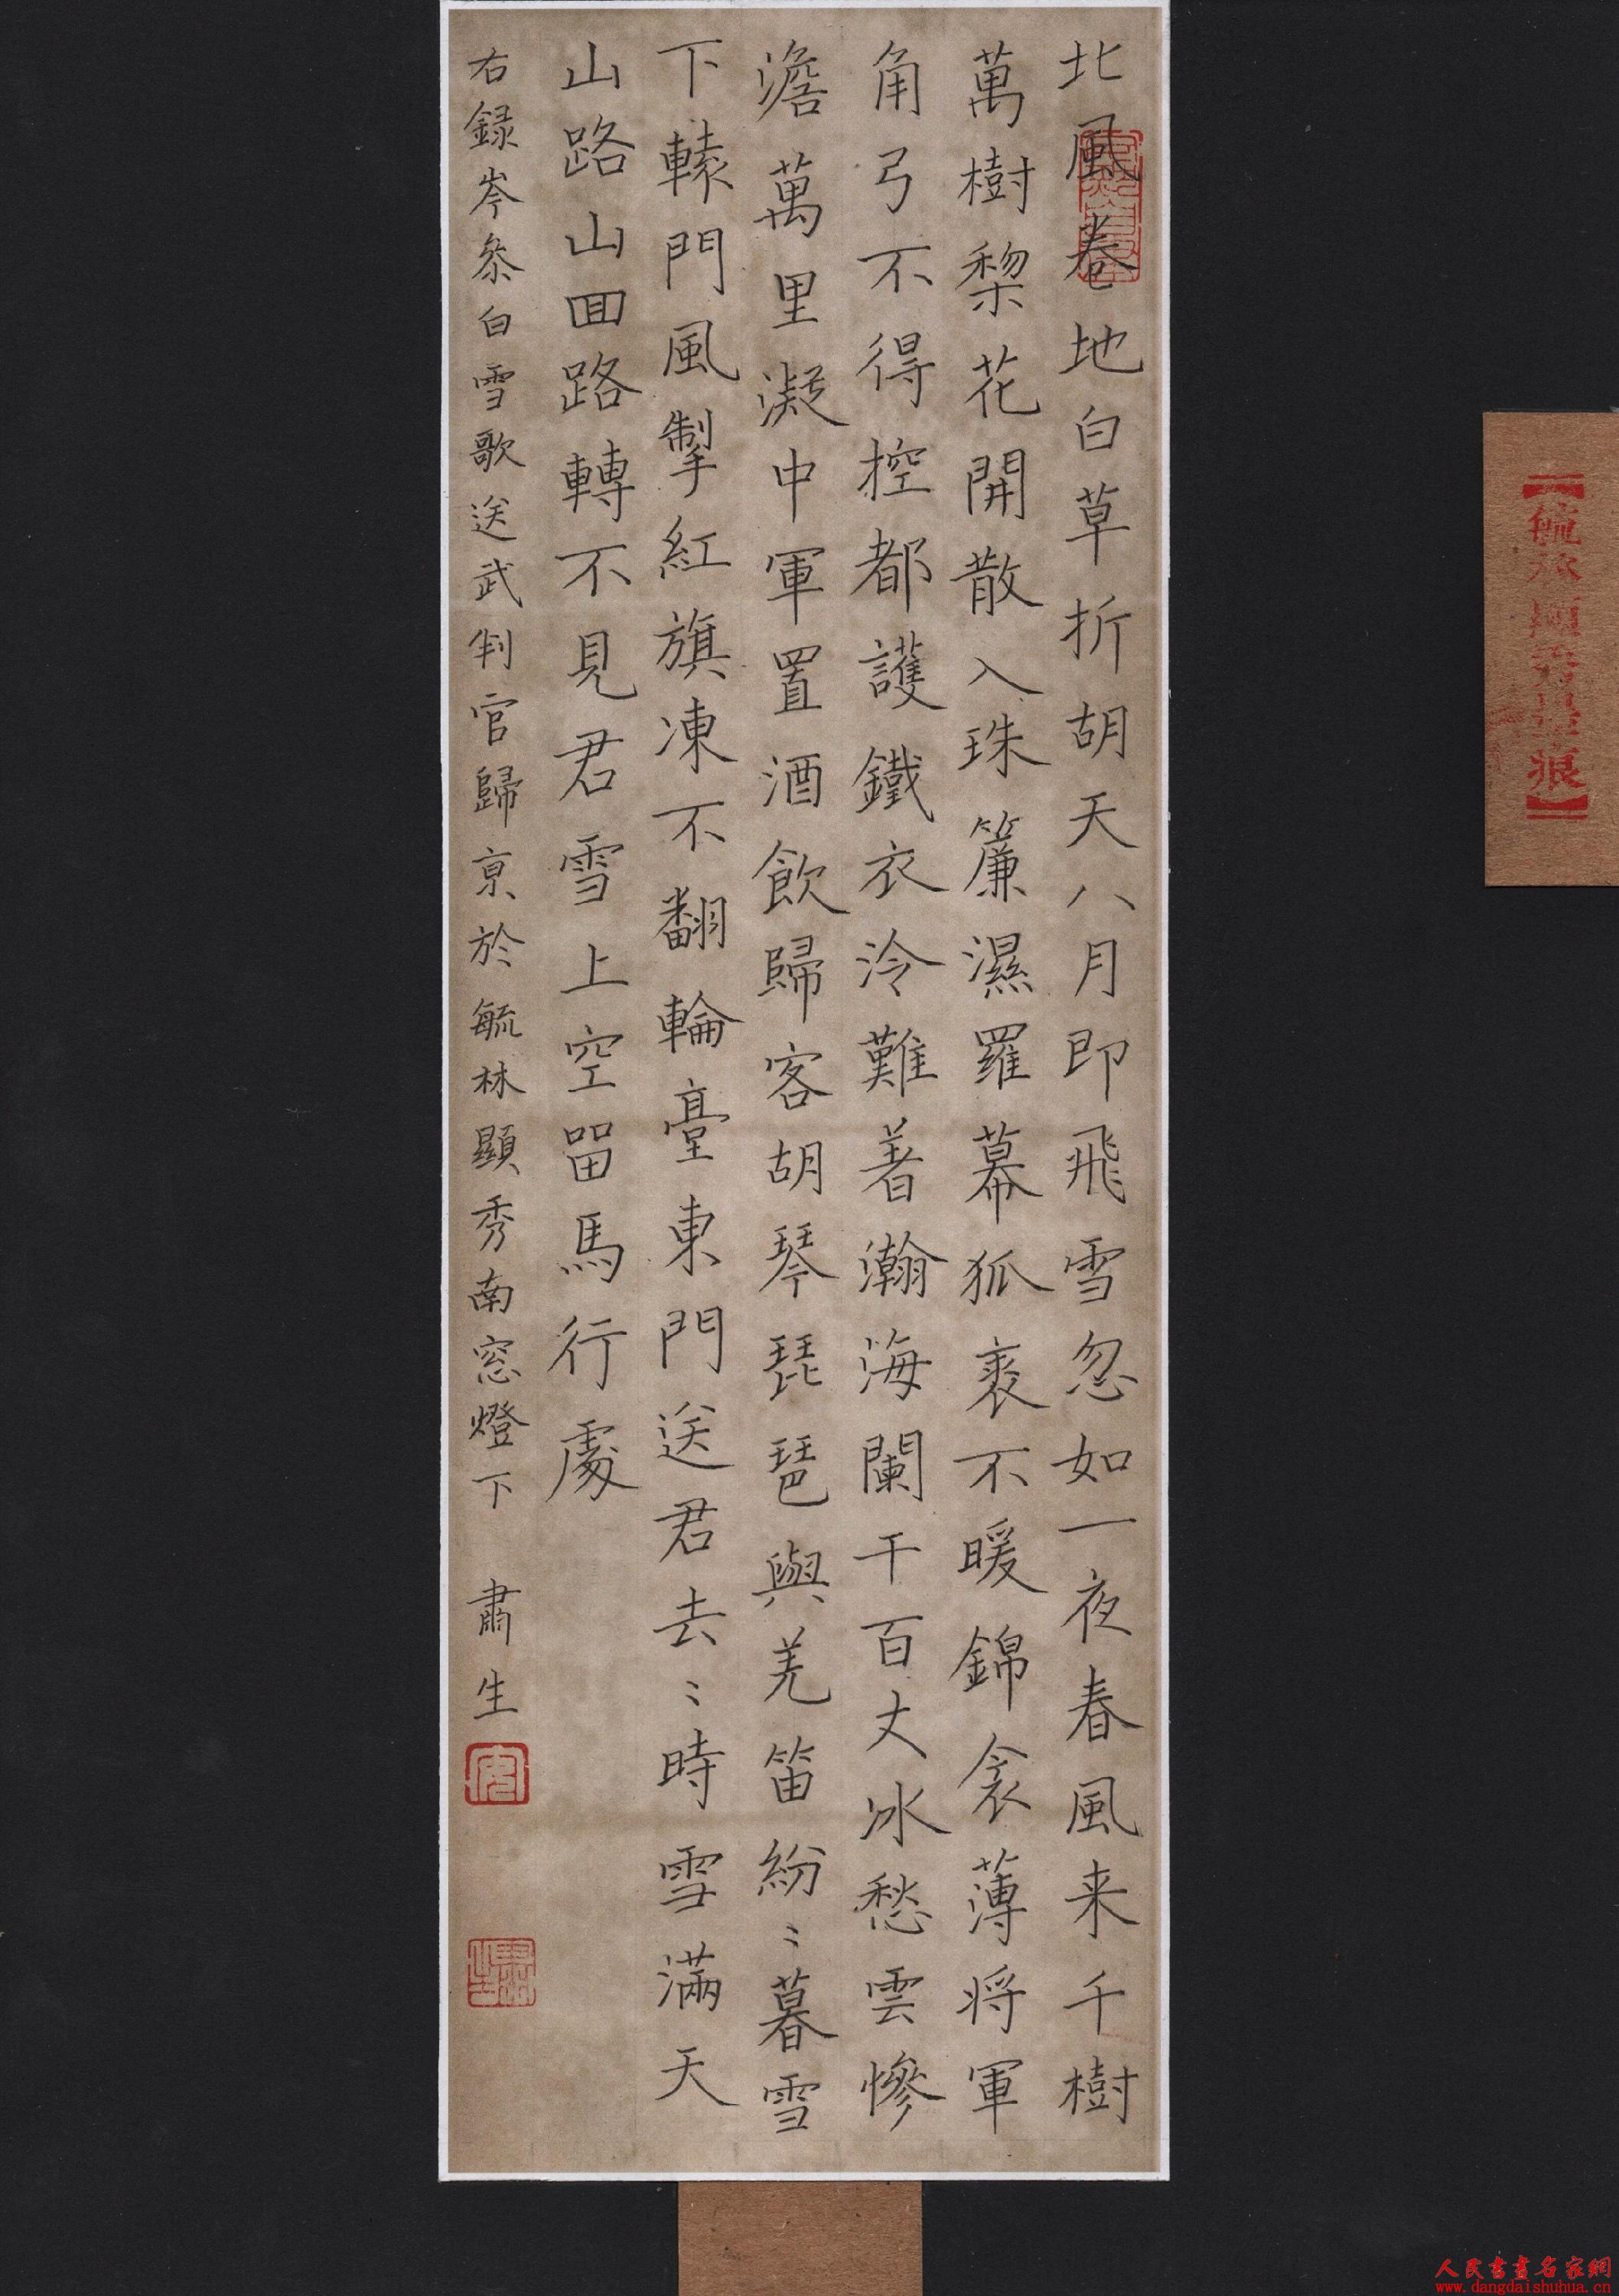 北風卷地白草折胡天八月即飛雪忽如一夜春風来千樹
萬樹棃花開散入珠簾濕羅幕狐裘不暖錦衾薄将軍
角弓不得控都護鐵衣冷難着瀚海闌干百丈冰愁雲慘
澹萬里凝中軍置酒飲歸客胡琴琵琶與羌笛紛〻暮雪
下轅門風掣紅旗凍不翻輪臺東門送君去〻時雪滿天
山路山回路轉不見君雪上空留馬行處
右録岑參白雪歌送武判官歸京於毓林顯秀南窓燈下 肅生
人民書畫名家網
www.dangdaishuhua.cn